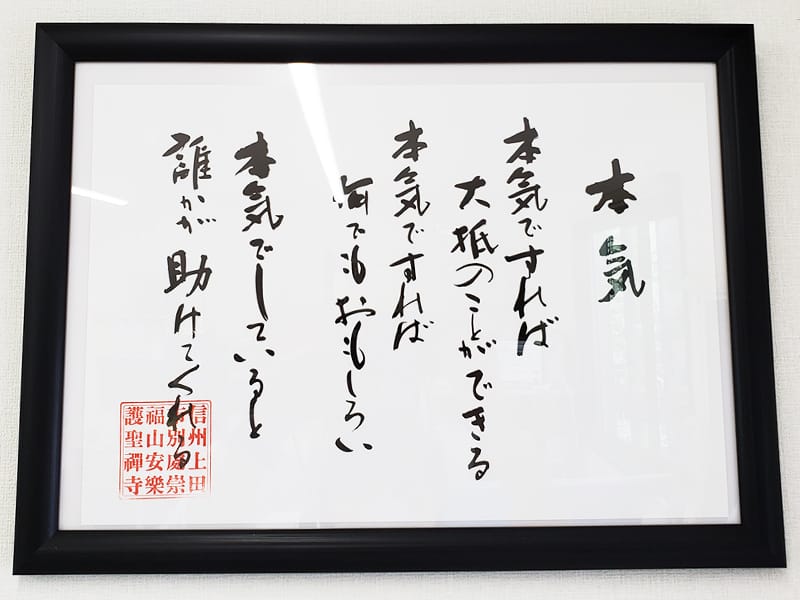 本気
本気ですれば
大抵のことができる
本気ですれば
何でもおもしろい
本気でしていると
誰かが助けてくれる
信州上田
別處崇
福山安樂
護聖禪寺